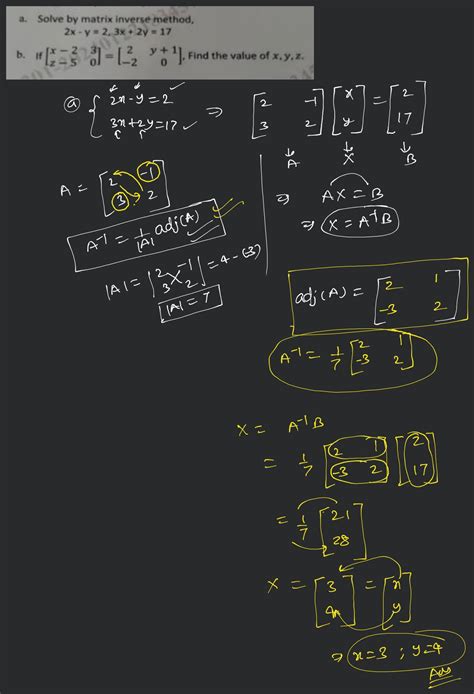 a. Solve by matrix inverse method,
2x - y = 2, 3x + 2y = 17
b. If [x - 2 3 z - 5 0] = [2 y + 1 -2 0], Find the value of x, y, z.
ⓐ { 2x - y = 2 ✓ ⇒ [2 -1] [x] = [2]
3x + 2y = 17 ✓ [3 2] [y] [17]
↓ A ↓ X ↓ B
A = [2 -1
3 2]
⇒ AX = B
A⁻¹ = 1/|A| adj(A) ✓
⇒ X = A⁻¹B
|A| = |2 -1 3 2| = 4 - (-3)
|A| = 7
adj(A) = [2 1
-3 2]
A⁻¹ = 1/7 [2 1
-3 2]
X = A⁻¹B
= 1/7 [2 1] [2]
[-3 2] [17]
= 1/7 [21
28]
X = [3] = [x]
[4] [y]
⇒ x = 3 ; y = 4
Ans